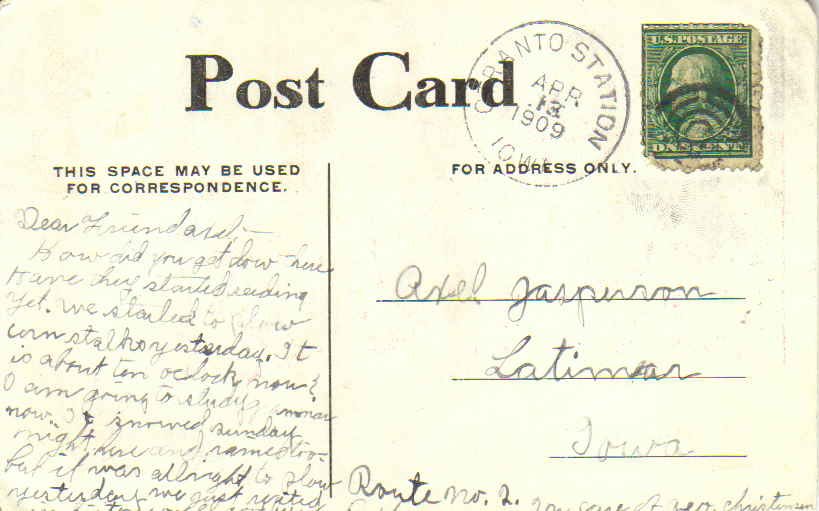 Post Card
THIS SPACE MAY BE USED
FOR CORRESPONDENCE.
FOR ADDRESS ONLY.
RANTO STATION
APR
13
1909
IOWA
U.S. POSTAGE
ONE CENT
Dear Friend
How did you get down there
Have they started seeding
yet. We started to plow
corn stalks yesterday. It
is about ten oclock now &
I am going to study
now. It snowed sunday
night here and rained too
but it was allright to plow
yesterday we just rested
Axel Jasperson
Latimar
Iowa
Route No. 2. care of geo. christensen